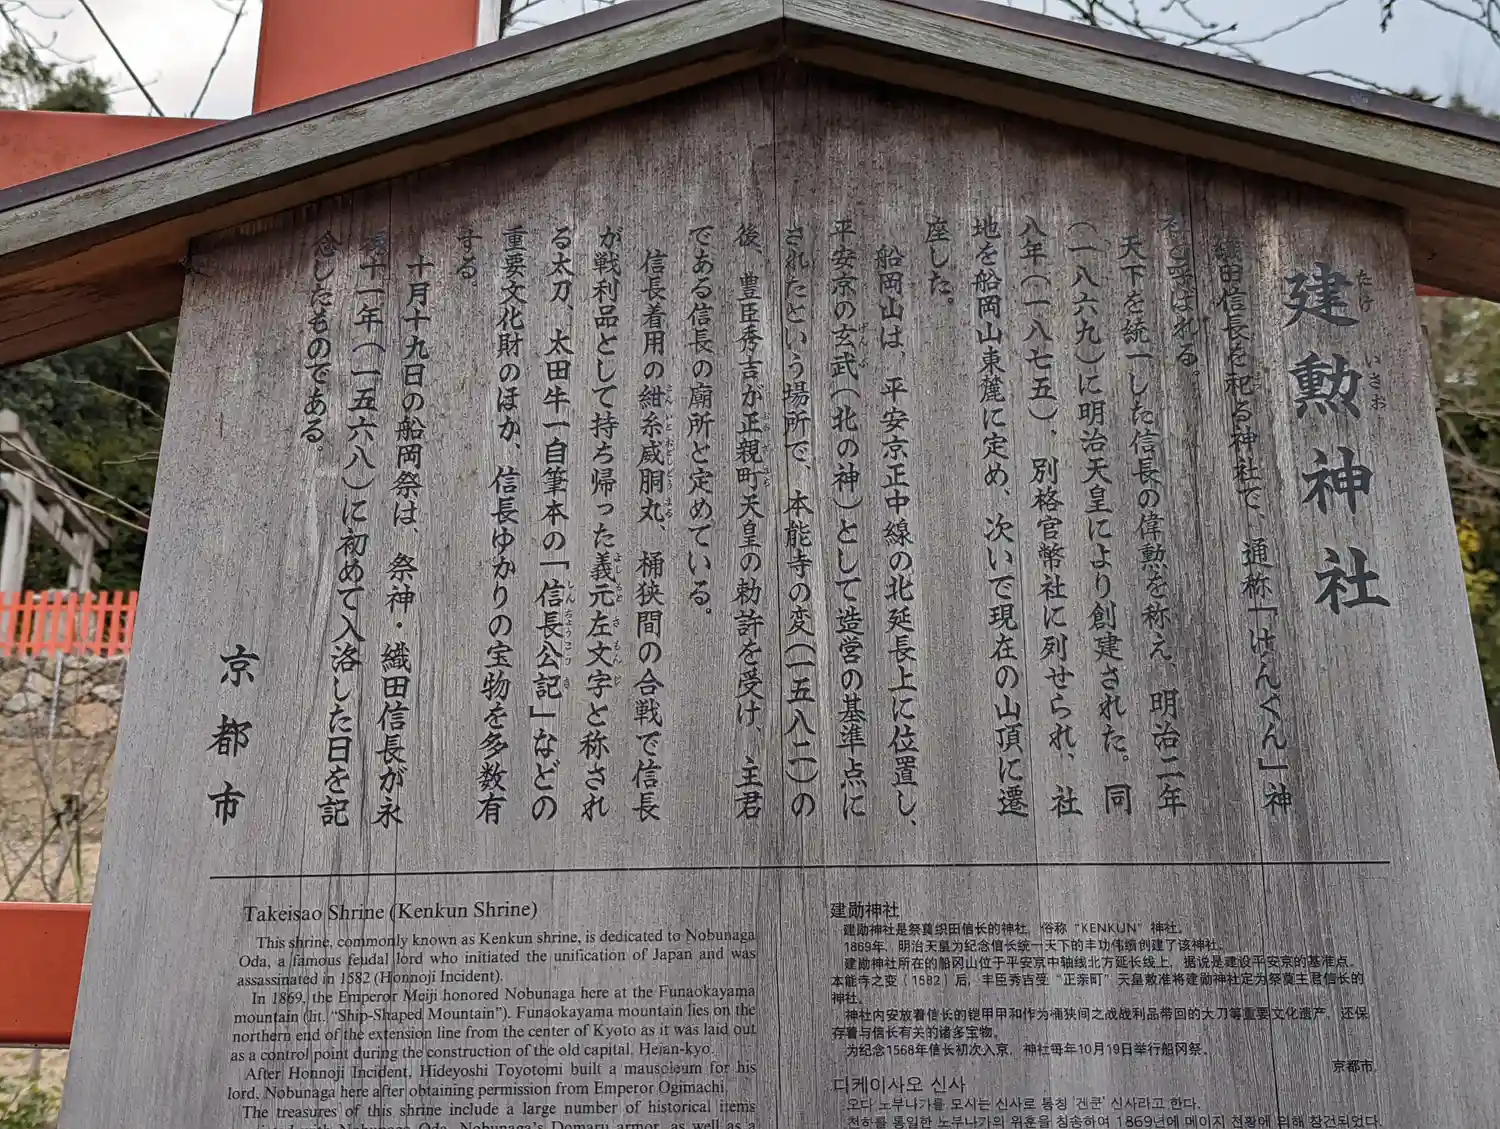 建勲神社
たけ いさお
織田信長を祀る神社で、通称「けんくん」神
社と呼ばれる。
天下を統一した信長の偉勲を称え、明治二年
(一八六九)に明治天皇により創建された。同
八年(一八七五)、別格官幣社に列せられ、社
地を船岡山東麓に定め、次いで現在の山頂に遷
座した。
船岡山は、平安京正中線の北延長上に位置し、
平安京の玄武(北の神)として造営の基準点に
されたという場所で、本能寺の変(一五八二)の
後、豊臣秀吉が正親町天皇の勅許を受け、主君
である信長の廟所と定めている。
信長着用の紺糸威胴丸、桶狭間の合戦で信長
が戦利品として持ち帰った義元左文字と称され
る太刀、太田牛一自筆本の「信長公記」などの
重要文化財のほか、信長ゆかりの宝物を多数有
する。
十月十九日の船岡祭は、祭神・織田信長が永
禄十一年(一五六八)に初めて入洛した日を記
念したものである。
京都市
Takeisao Shrine (Kenkun Shrine)
This shrine, commonly known as Kenkun shrine, is dedicated to Nobunaga
Oda, a famous feudal lord who initiated the unification of Japan and was
assassinated in 1582 (Honnoji Incident).
In 1869, the Emperor Meiji honored Nobunaga here at the Funaokayama
mountain (lit. “Ship-Shaped Mountain”). Funaokayama mountain lies on the
northern end of the extension line from the center of Kyoto as it was laid out
as a control point during the construction of the old capital, Heian-kyo.
After Honnoji Incident, Hideyoshi Toyotomi built a mausoleum for his
lord, Nobunaga here after obtaining permission from Emperor Ogimachi.
The treasures of this shrine include a large number of historical items
Nobunaga Oda, Nobunaga's Domaru armor, as well as a
建勋神社
建勋神社是祭奠织田信长的神社，俗称“KENKUN”神社。
1869年，明治天皇为纪念信长统一天下的丰功伟绩创建了该神社。
建勋神社所在的船冈山位于平安京中轴线北方延长线上，据说是建设平安京的基准点。
本能寺之变（1582）后，丰臣秀吉受“正亲町”天皇敕准将建勋神社定为祭奠主君信长的
神社。
神社内安放着信长的铠甲和作为桶狭间之战战利品带回的大刀等重要文化遗产，还保
存着与信长有关的诸多宝物。
为纪念1568年信长初次入京，神社每年10月19日举行船冈祭。
京都市
디케이사오 신사
오다 노부나가를 모시는 신사로 통칭 '겐쿤' 신사라고 한다.
천하를 통일한 노부나가의 위훈을 칭송하여 1869년에 메이지 천황에 의해 창건되었다.